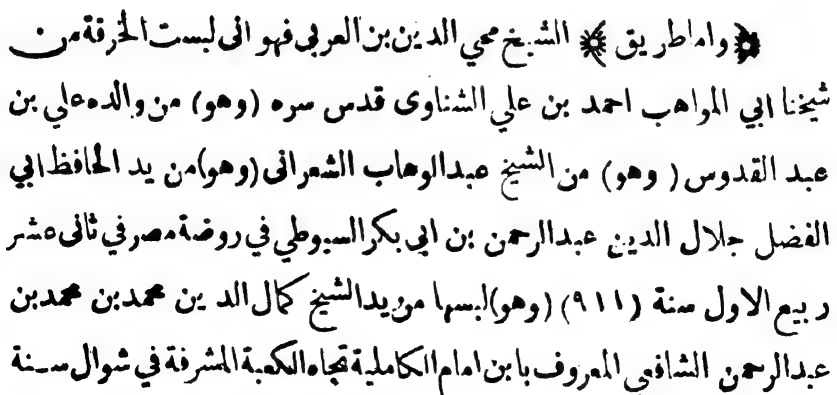 ﴿ واما طريق ﴾ الشيخ محي الدين بن العربي فهو انى لبست الخرقة من
شيخنا ابي المواهب احمد بن علي الشناوى قدس سره (وهو) من والده علي بن
عبد القدوس (وهو) من الشيخ عبدالوهاب الشعرانى (وهو) من يد الحافظ ابي
الفضل جلال الدين عبدالرحمن بن ابى بكر السيوطي في روضة مصر في ثانى عشر
ربيع الاول سنة (٩١١) (وهو) لبسها من يد الشيخ كمال الدين محمد بن محمد بن
عبدالرحمن الشافعي المعروف بابن امام الكاملية تجاه الكعبة المشرفة في شوال سنة